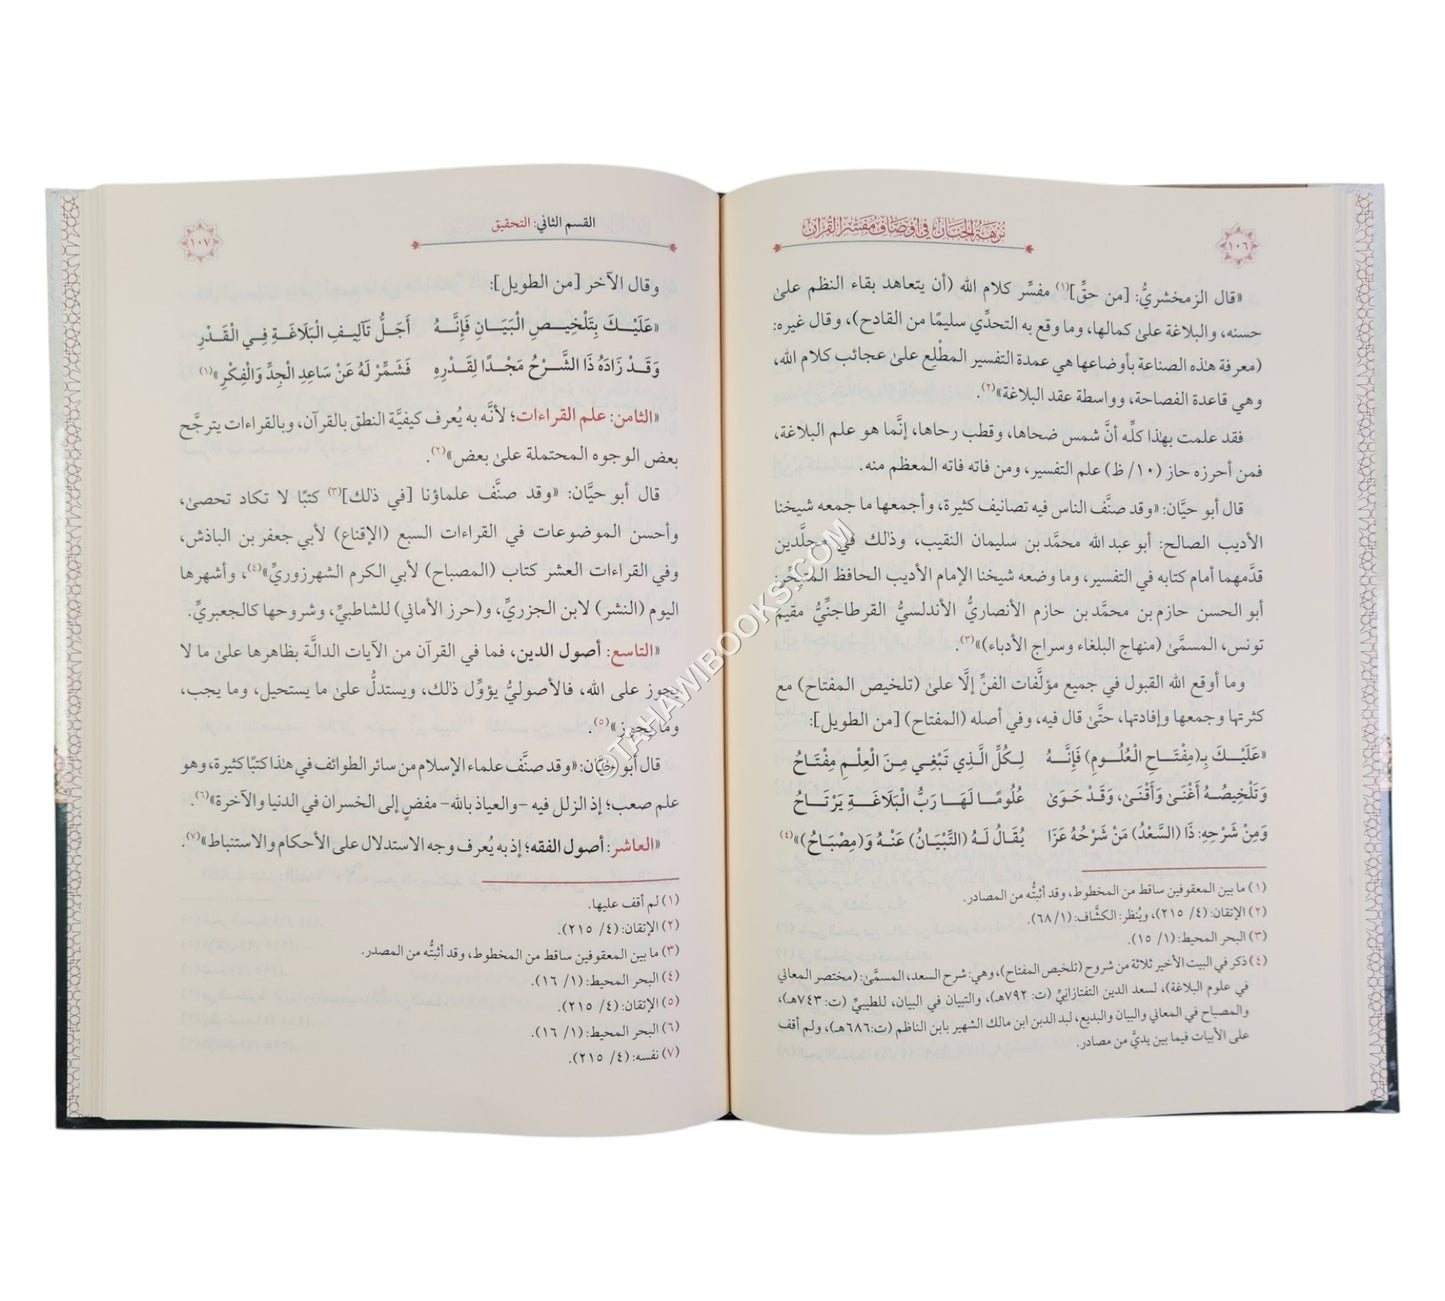 ١٠٦
نزهة الجنان في أوصاف مفسر القرآن
«قال الزمخشريُّ: [من حقِّ](١) مفسِّر كلام الله (أن يتعاهد بقاء النظم علىٰ
حسنه، والبلاغة علىٰ كمالها، وما وقع به التحدِّي سليمًا من القادح)، وقال غيره:
(معرفة هٰذه الصناعة بأوضاعها هي عمدة التفسير المطْلِع علىٰ عجائب كلام الله،
وهي قاعدة الفصاحة، وواسطة عقد البلاغة»(٢).
فقد علمت بهٰذا كلِّه أنَّ شمس ضحاها، وقطب رحاها، إنَّما هو علم البلاغة،
فمن أحرزه حاز (١٠/ ظ) علم التفسير، ومن فاته فاته المعظم منه.
قال أبو حيَّان: «وقد صنَّف الناس فيه تصانيف كثيرة، وأجمعها ما جمعه شيخنا
الأديب الصالح: أبو عبد الله محمَّد بن سليمان النقيب، وذلك في مجلَّدين
قدَّمهما أمام كتابه في التفسير، وما وضعه شيخنا الإمام الأديب الحافظ المتبحِّر:
أبو الحسن حازم بن محمَّد بن حازم الأنصاريُّ الأندلسيُّ القرطاجنِّيُّ مقيم
تونس، المسمَّىٰ (منهاج البلغاء وسراج الأدباء)»(٣).
وما أوقع الله القبول في جميع مؤلَّفات الفنِّ إلَّا علىٰ (تلخيص المفتاح) مع
كثرتها وجمعها وإفادتها، حتَّىٰ قال فيه، وفي أصله (المفتاح) [من الطويل]:
«عَلَيْـكَ بِـ(مِفْتَـاحِ الْعُلُـومِ) فَإِنَّـهُ لِكُلِّ الَّذِي تَبْغِي مِنَ الْعِلْمِ مِفْتَاحُ
وَتَلْخِيصُهُ أَغْنَىٰ وَأَقْنَىٰ، وَقَدْ حَوَىٰ عُلُومًـا لَهَـا رَبُّ الْبَلَاغَـةِ يَرْتَـاحُ
وَمِنْ شَرْحِهِ: ذَا (السَّعْدُ) مَنْ شَرْحُهُ عَزَا يُقَالُ لَهُ (التِّبْيَانُ) عَنْهُ وَ(مِصْبَاحُ)»(٤)
(١) ما بين المعقوفين ساقط من المخطوط، وقد أثبتُّه من المصادر.
(٢) الإتقان: (٤/ ٢١٥)، ويُنظر: الكشَّاف: (١/ ٦٨).
(٣) البحر المحيط: (١/ ١٥).
(٤) ذكر في البيت الأخير ثلاثة من شروح (تلخيص المفتاح)، وهي: شرح السعد، المسمَّىٰ: (مختصر المعاني
في علوم البلاغة)، لسعد الدين التفتازانيِّ (ت: ٧٩٢هـ)، والتبيان في البيان، للطيبيِّ (ت: ٧٤٣هـ)،
والمصباح في المعاني والبيان والبديع، لبد الدبن ابن مالك الشهير بابن الناظم (ت:٦٨٦هـ)، ولم أقف
على الأبيات فيما بين يديَّ من مصادر.
القسم الثاني: التحقيق
١٠٧
وقال الآخر [من الطويل]:
«عَلَيْـكَ بِتَلْخِيـصِ الْبَيَـانِ فَإِنَّـهُ أَجَلُّ تَآلِيفِ الْبَلَاغَةِ فِي الْقَدْرِ
وَقَـدْ زَادَهُ ذَا الشَّـرْحُ مَجْـدًا لِقَدْرِهِ فَشَمِّرْ لَهُ عَنْ سَاعِدِ الْجِدِّ وَالْفِكْرِ»(١)
«الثامن: علم القراءات؛ لأنَّه به يُعرف كيفيَّة النطق بالقرآن، وبالقراءات يترجَّح
بعض الوجوه المحتملة علىٰ بعض»(٢).
قال أبو حيَّان: «وقد صنَّف علماؤنا [في ذلك](٣) كتبًا لا تكاد تحصىٰ،
وأحسن الموضوعات في القراءات السبع (الإقناع) لأبي جعفر بن الباذش،
وفي القراءات العشر كتاب (المصباح) لأبي الكرم الشهرزوريِّ»(٤)، وأشهرها
اليوم (النشر) لابن الجزريِّ، و(حرز الأماني) للشاطبيِّ، وشروحها كالجعبريِّ.
«التاسع: أصول الدين، فما في القرآن من الآيات الدالَّة بظاهرها علىٰ ما لا
يجوز على الله، فالأصوليُّ يؤوِّل ذلك، ويستدلُّ علىٰ ما يستحيل، وما يجب،
وما يجوز»(٥).
قال أبو حيَّان: «وقد صنَّف علماء الإسلام من سائر الطوائف في هٰذا كتبًا كثيرة، وهو
علم صعب؛ إذ الزلل فيه -والعياذ بالله- مفضٍ إلى الخسران في الدنيا والآخرة»(٦).
«العاشر: أصول الفقه؛ إذ به يُعرف وجه الاستدلال على الأحكام والاستنباط»(٧).
(١) لم أقف عليها.
(٢) الإتقان: (٤/ ٢١٥).
(٣) ما بين المعقوفين ساقط من المخطوط، وقد أثبتُّه من المصدر.
(٤) البحر المحيط: (١/ ١٦).
(٥) الإتقان: (٤/ ٢١٥).
(٦) البحر المحيط: (١/ ١٦).
(٧) نفسه: (٤/ ٢١٥).
©TAHAWIBOOKS.COM